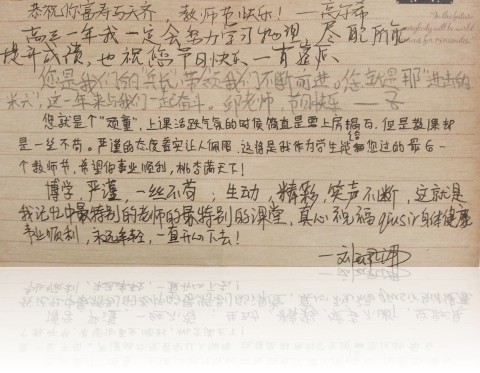 恭祝你富寿与天齐，教师节快乐！
高三一年我一定会努力学习物理，尽我所能
提升成绩，也祝您节日快乐
您是我们的兵长，带领我们不断前进。您就是那"进击的
米六"，这一年来与我们一起奋斗。邱老师，节日快乐
您就是个"顽童"，上课活跃气氛的时候简直是要上房揭瓦，但是教课却
是一丝不苟。严谨的态度着实让人佩服，这将是我作为学生能给您过的最后一
个教师节，希望您事业顺利，桃李满天下！
博学，严谨，一丝不苟；生动，精彩，笑声不断，这就是
我记忆中最特别的老师的最特别的课堂，真心祝福qiusir身体健康
事业顺利，永远年轻，一直开心下去！